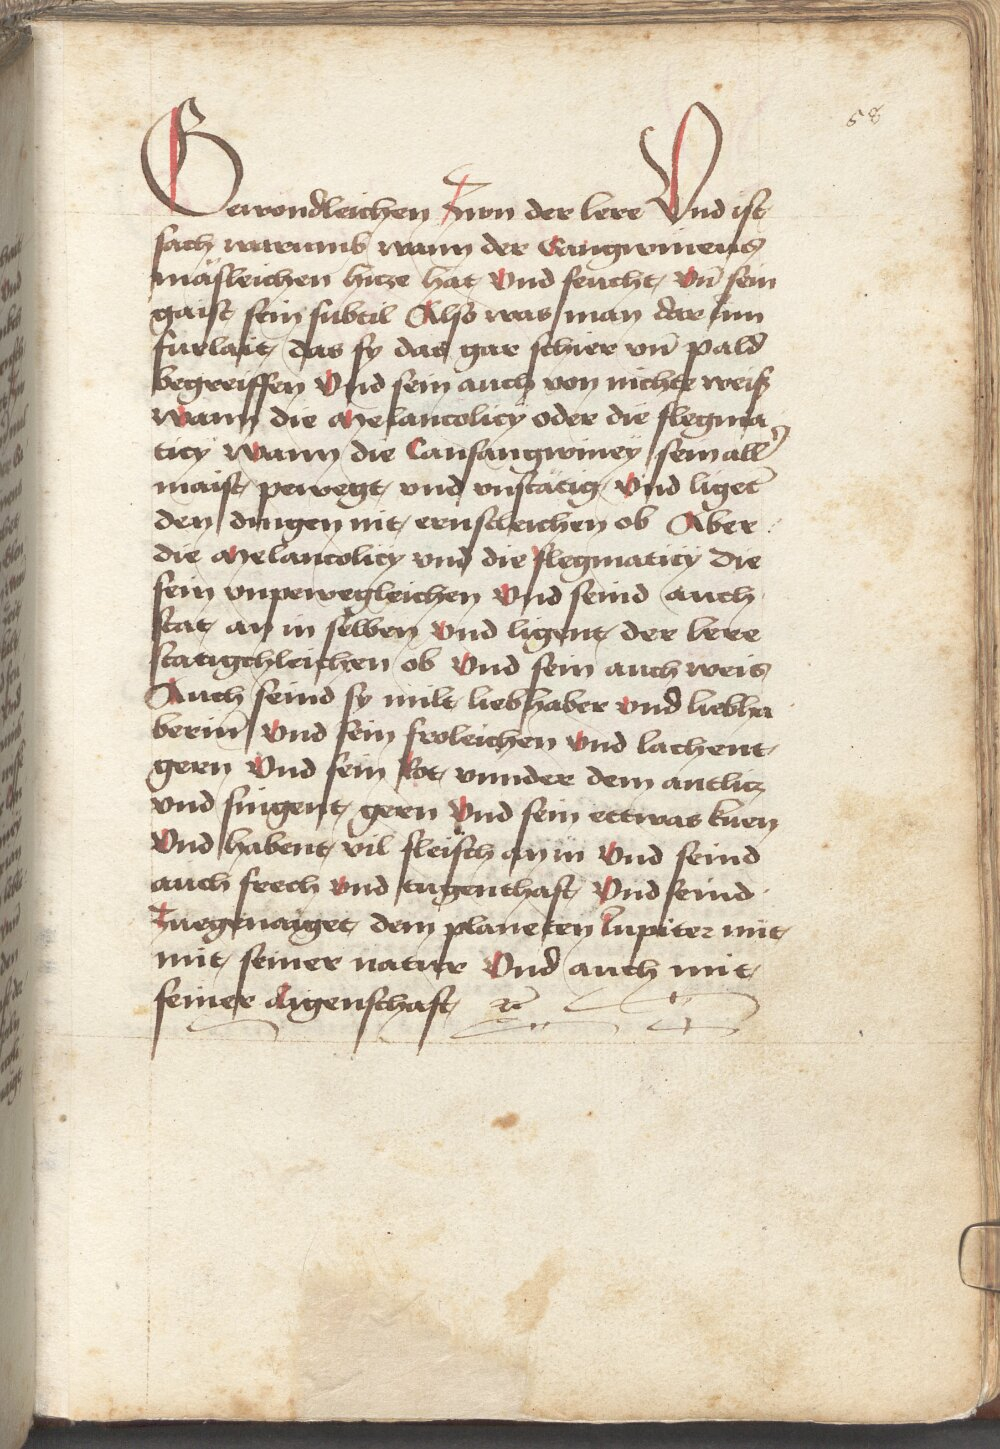 58
Gewondleichen zwon der lere Und ist
sach warumb wann der Sangwineus
mäsleichen hicze hat Und feucht, Vn̄ sein
gaist sein subtil Also was man dar Inn
fürlait, das sy das gar schier vn̄ pald
begreiffen Und sein auch von nichte weiß
Wann die Melancolicy oder die flegma
ticy Wann die Cansangwiney sein all
maist pewegt, vnd vnstätig, Vnd liget
den dingen nit, ernschleichen ob Aber
die Melancolicy vnd die flegmaticy Die
sein vnpewegleichen Vnd seind auch
stat, an in selben Vnd ligent, der lere
statigchleichen ob Vnd sein auch weis
Auch seind sy milt liebhaber vnd liebha
berin̄ Vnd sein froleichen Vnd lachent
gern Vnd sein Rot, vnnder dem antlicz
vnd singent, gern Vnd sein ettwas kuen
Vnd habent, vil fleisch an in Vnd seind
auch frech vnd tugenthaft Vnd seind
Zuegenaiget dem planeten Jupiter mit
mit, seiner natur Vnd auch mit,
seiner Aigenschaft, ꝛc̄